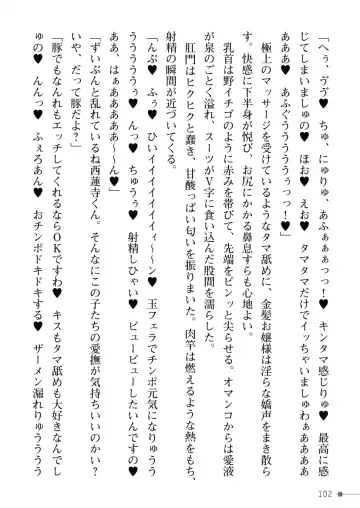 「へぅ、ゔゔ♥　ちゅ、にゅりゅ、あふぁぁぁっっ！♥　キンタマ感じりゅ♥　最高に感
じてしまいましゅの♥　ほお♥　えお♥　タマタマだけでイッちゃいましゅわぁああああ
あああ♥　あふぐうううううぅっっ！♥」
　極上のマッサージを受けているようなタマ舐めに、金髪お嬢様は淫らな嬌声をまき散ら
す。快感に下半身が悦び、お尻にかかる鼻息すらも心地よい。
　乳首は野イチゴのように赤みを帯びて、先端をピンッと尖らせる。オマンコからは愛液
が泉のごとく溢れ、スーツがＶ字に食い込んだ股間を濡らした。
　肛門はヒクヒクと蠢き、甘酸っぱい匂いを振りまいた。肉竿は燃えるような熱をもち、
射精の瞬間が近づいてくる。
「んぷ♥　ふぅ♥　ひいイイイイイイィ～～ン♥　玉フェラでチンポ元気になりゅうう
うううううぅ♥　んっ♥　ちゅうぅ♥　射精しひゃい♥　ビュービューしたいんですの♥
ああ、はぁああああぁ～ん♥」
「ずいぶんと乱れているね西蓮寺くん。そんなにこの子たちの愛撫が気持ちいいのかい？
だって豚だよ？」
「豚でもなんれもエッチしてくれるならＯＫですわ♥　キスもタマ舐めも大好きなんでし
ゅの♥　んんっ♥　ふぇろあん♥　おチンポドキドキする♥　ザーメン漏れりゅううう
102